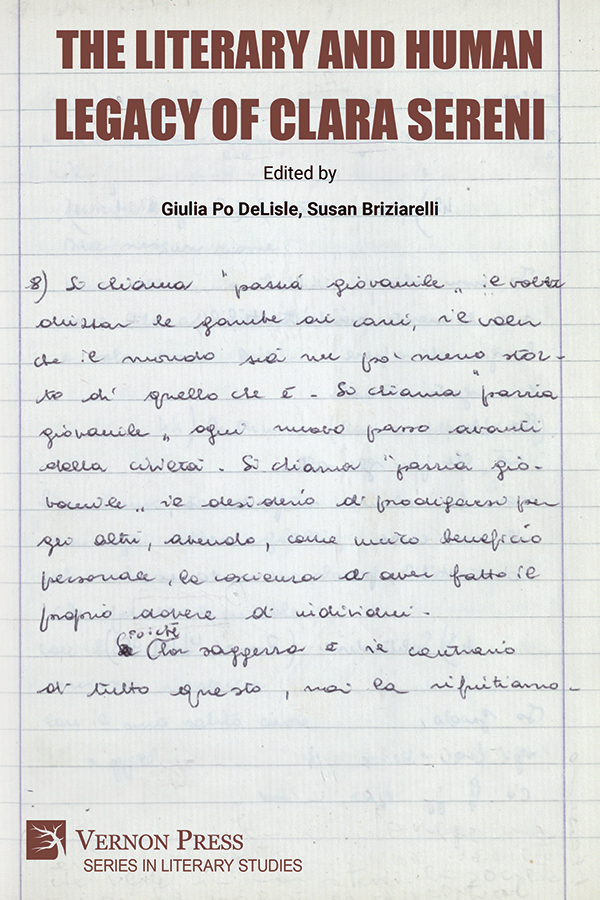 THE LITERARY AND HUMAN
LEGACY OF CLARA SERENI
Edited by
Giulia Po DeLisle, Susan Briziarelli
8) Si chiama "pazzia giovanile" il voler
drizzar le gambe ai cani, il voler
che il mondo sia un po' meno stor-
to di quello che è - Si chiama "pazzia
giovanile" ogni nuovo passo avanti
della civiltà - Si chiama "pazzia gio-
vanile" il desiderio di prodigarsi per
gli altri, avendo, come unico beneficio
personale, la coscienza di aver fatto il
proprio dovere di individui -
poiché
la saggezza è il contrario
di tutto questo, noi la rifiutiamo -
VERNON PRESS
SERIES IN LITERARY STUDIES